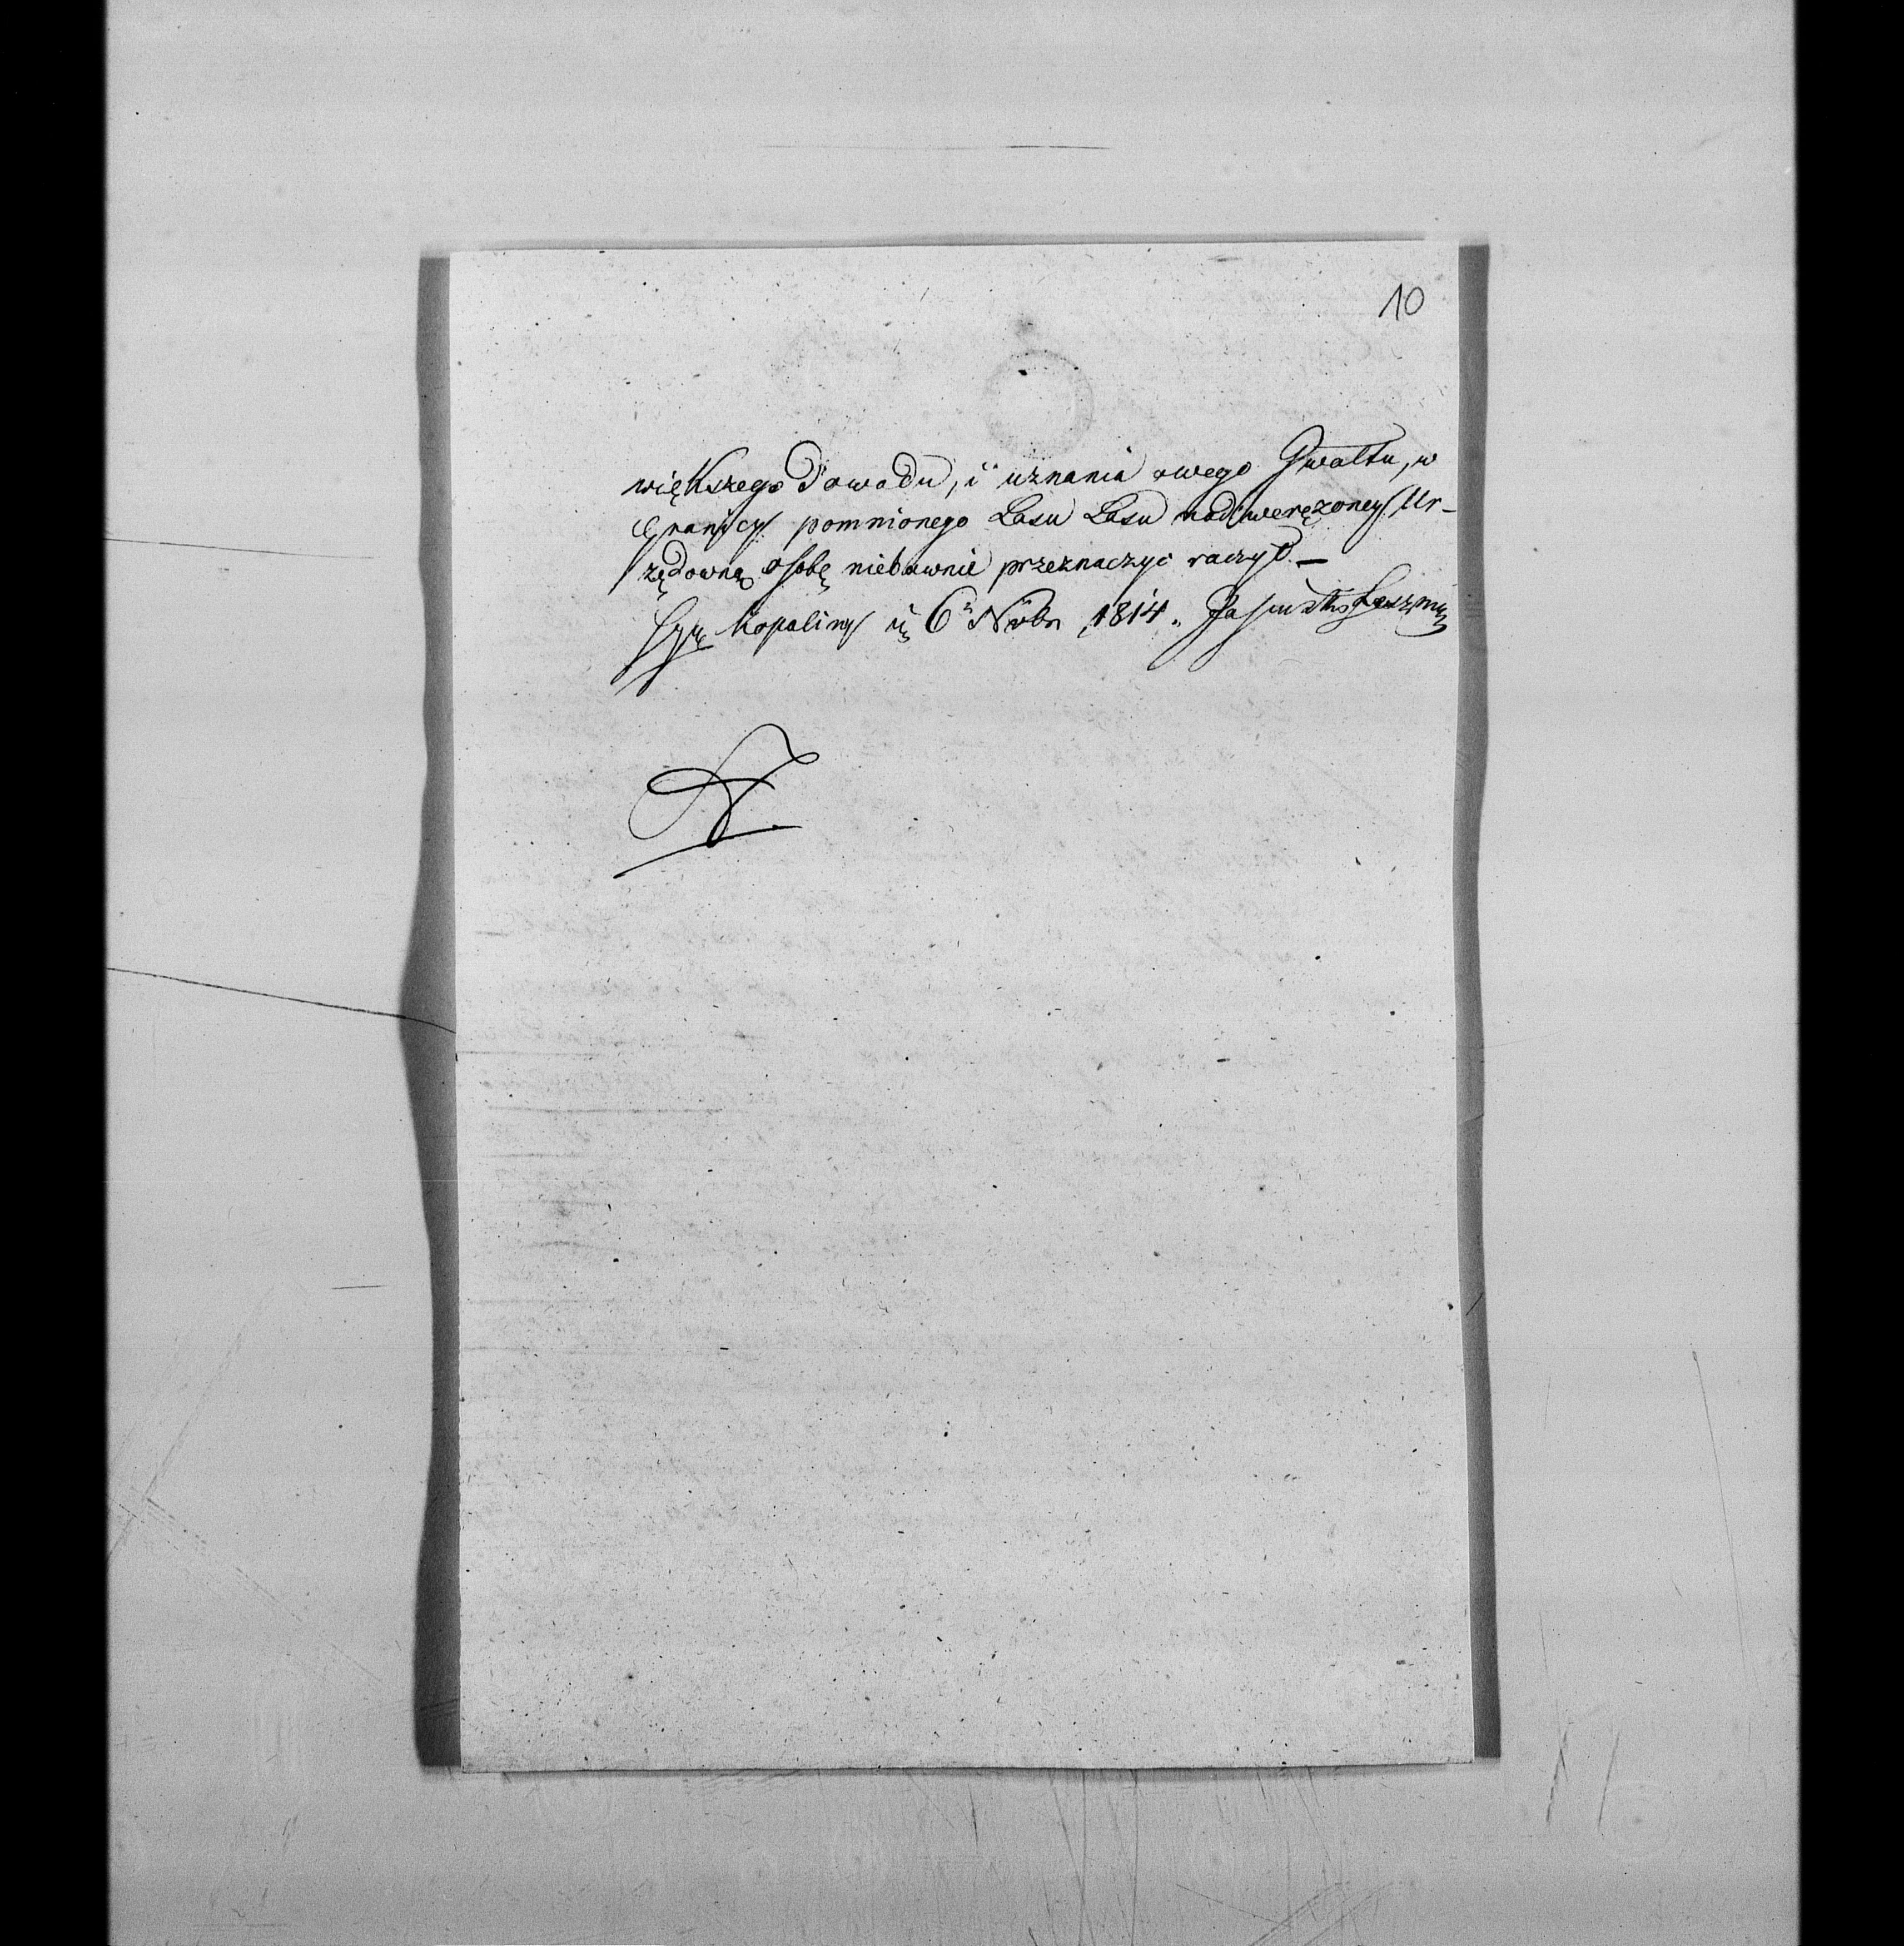 10
większego Dowodu, i uznania owego Gwałtu, w
Granicy pomnionego Lasu Lasu nadwerężoney Ur-
zędowną osobę niebawnie przeznaczyć raczył. —
Kopaliny 6 Növbr 1814.